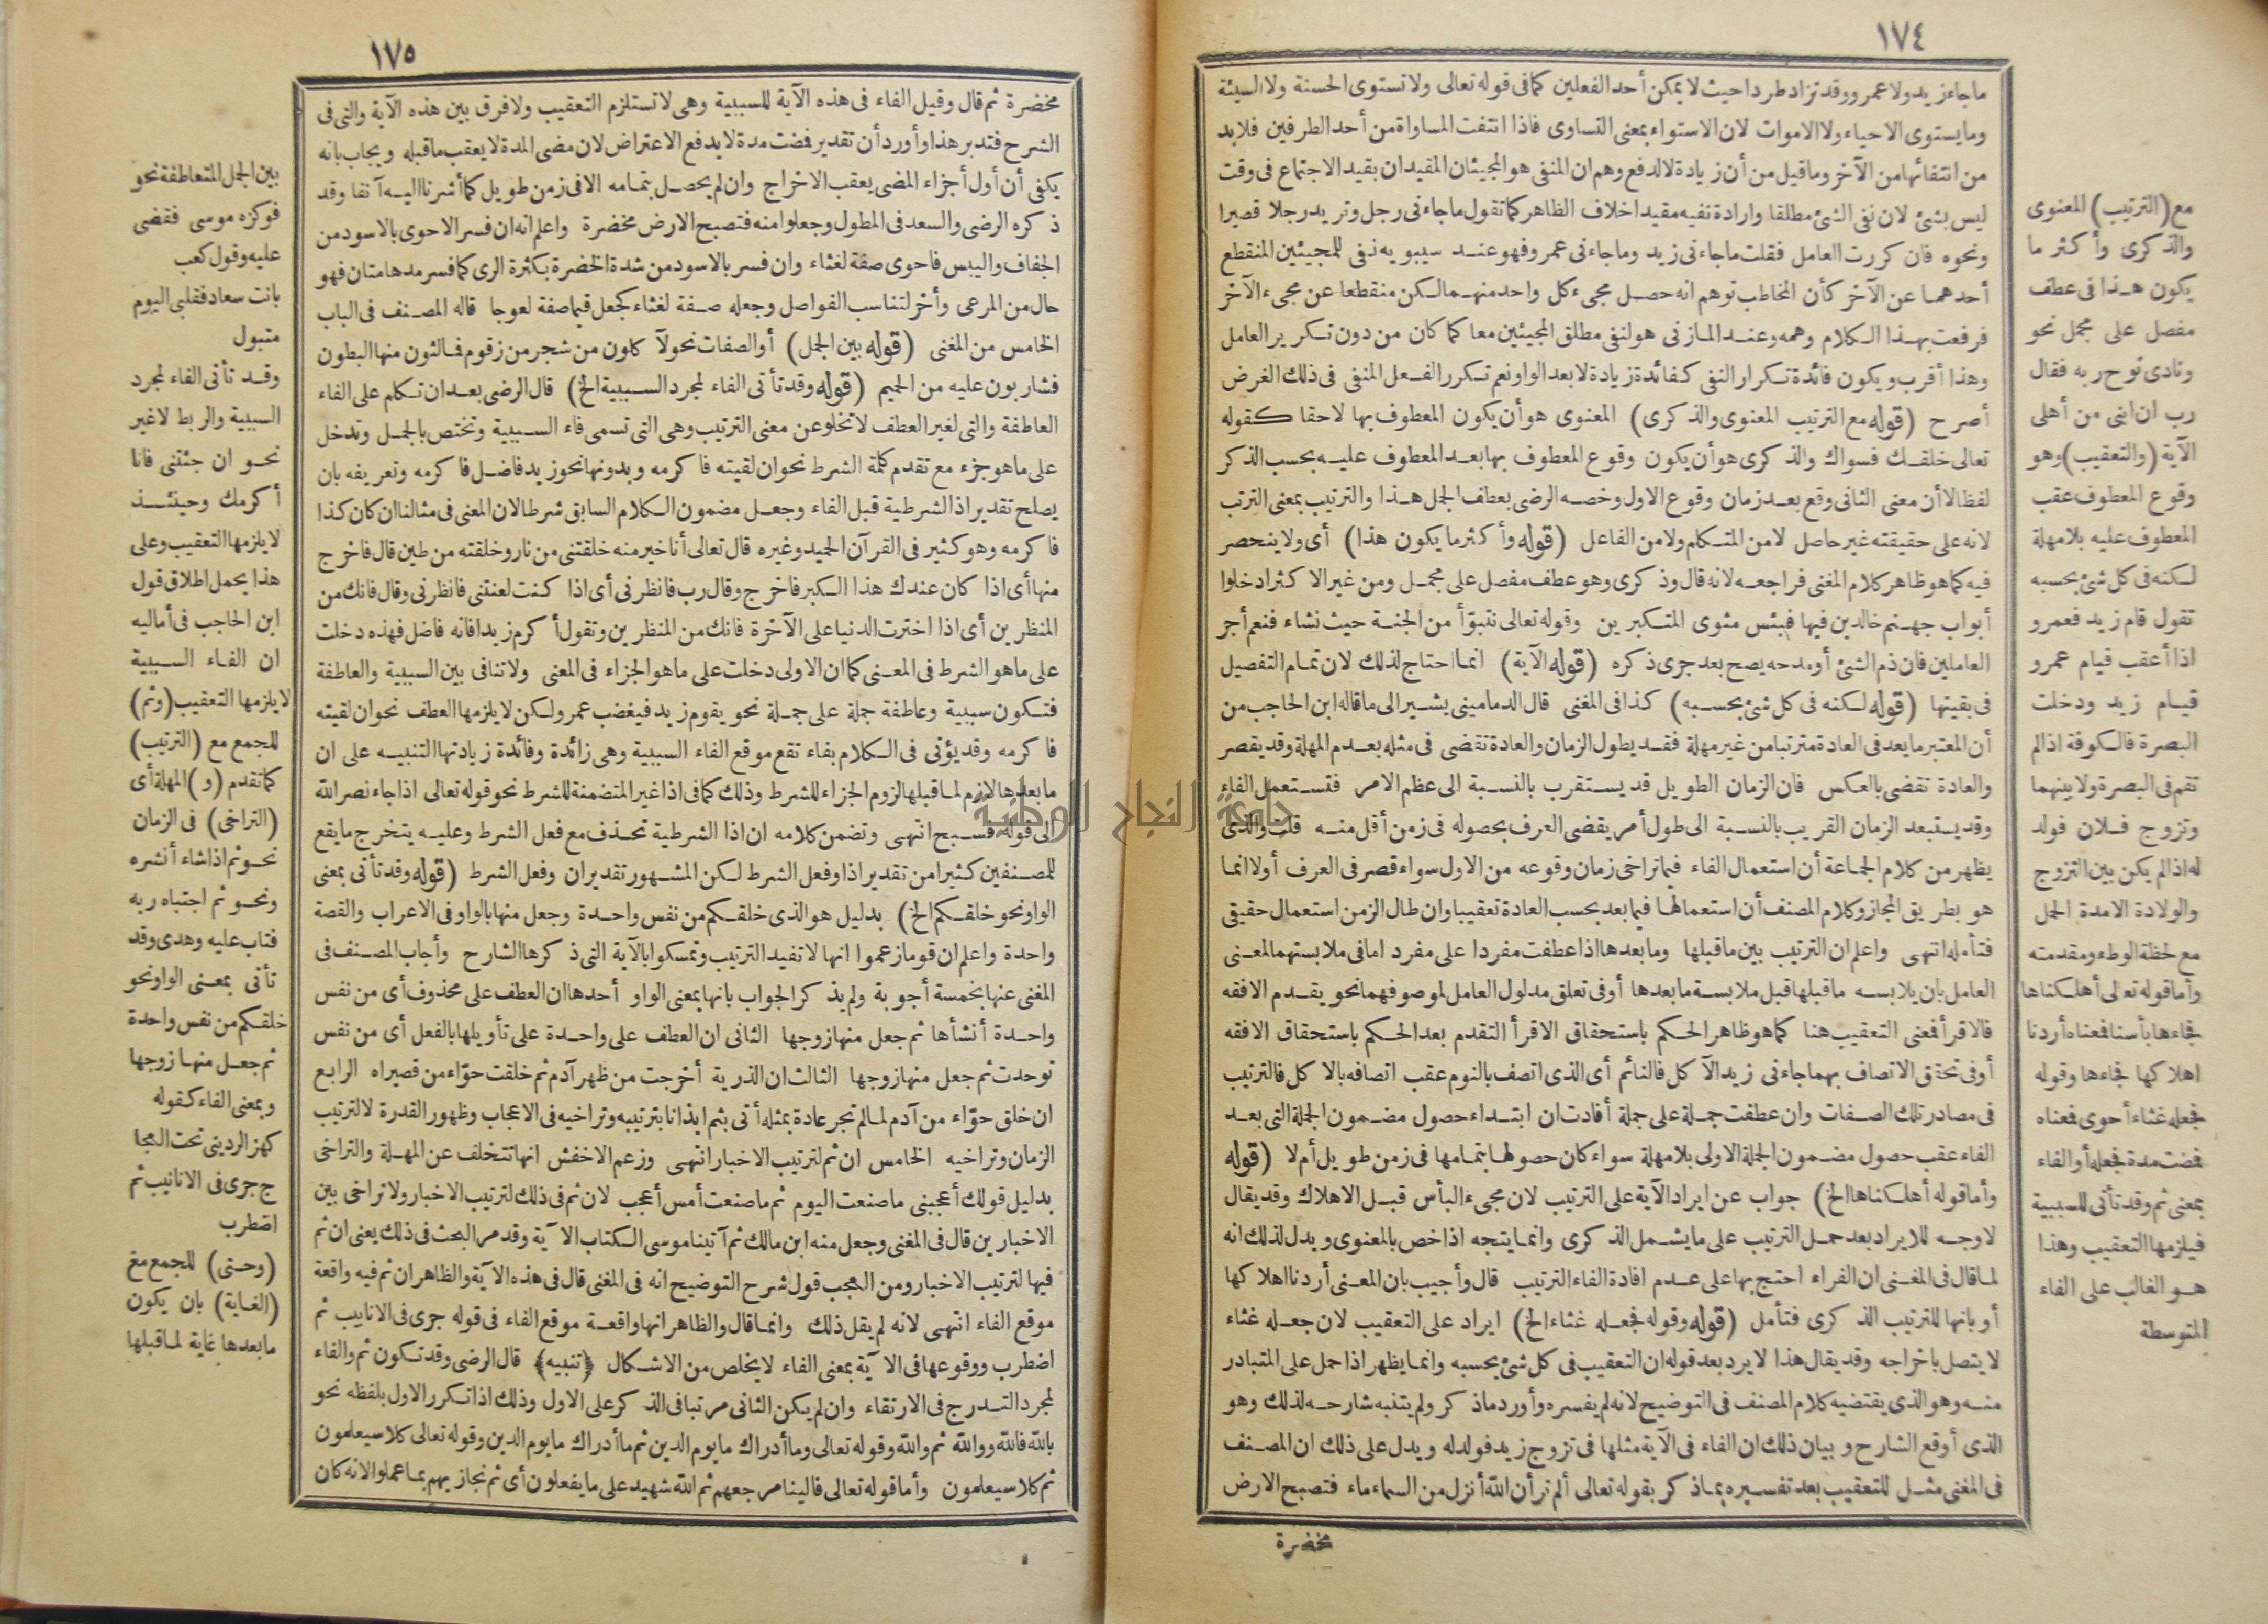 ١٧٤
ما جاء زيد ولا عمرو وقد تزاد طرداحيث لا يمكن أحد الفعلين كما فى قوله تعالى ولا تستوى الحسنة ولا السيئة
وما يستوى الاحياء ولا الاموات لان الاستواء بمعنى التساوى فاذا انتفت المساواة من أحد الطرفين فلا بد
من انتفائها من الآخر وما قيل من أن زيادة لا لدفع وهم ان المنفى هو المجيئان المقيدان بقيد الاجتماع فى وقت
ليس بشئ لان نفى الشئ مطلقا وارادة نفيه مقيدا خلاف الظاهر كما تقول ما جاءنى رجل وتريد رجلا قصيرا
ونحوه فان كررت العامل فقلت ما جاءنى زيد وما جاءنى عمرو فهو عند سيبويه نفى للمجيئين المنقطع
أحدهما عن الآخر كأن المخاطب توهم انه حصل مجىء كل واحد منهما لكن منقطعا عن مجىء الآخر
فرفعت بهذا الكلام وهمه وعند المازنى هو لنفى مطلق المجيئين معا كما كان من دون تكرير العامل
وهذا أقرب ويكون فائدة تكرار النفى كفائدة زيادة لا بعد الواو نعم تكرر الفعل المنفى فى ذلك الغرض
أصرح (قوله مع الترتيب المعنوى والذكرى) المعنوى هو أن يكون المعطوف بها لاحقا كقوله
تعالى خلقك فسواك والذكرى هو أن يكون وقوع المعطوف بها بعد المعطوف عليه بحسب الذكر
لفظا لا أن معنى الثانى وقع بعد زمان وقوع الاول وخصه الرضى بعطف الجمل هذا والترتيب بمعنى الترتب
لانه على حقيقته غير حاصل لا من المتكلم ولا من الفاعل (قوله وأكثر ما يكون هذا) أى ولا ينحصر
فيه كما هو ظاهر كلام المغنى فراجعه لانه قال وذكرى وهو عطف مفصل على مجمل ومن غير الاكثر ادخلوا
أبواب جهنم خالدين فيها فبئس مثوى المتكبرين وقوله تعالى نتبوّأ من الجنة حيث نشاء فنعم أجر
العاملين فان ذم الشئ أو مدحه يصح بعد جرى ذكره (قوله الآية) انما احتاج لذلك لان تمام التفصيل
فى بقيتها (قوله لكنه فى كل شئ بحسبه) كذا فى المغنى قال الدمامينى يشير الى ما قاله ابن الحاجب من
أن المعتبر ما يعد فى العادة مترتبا من غير مهلة فقد يطول الزمان والعادة تقضى فى مثله بعدم المهلة وقد يقصر
والعادة تقضى بالعكس فان الزمان الطويل قد يستقرب بالنسبة الى عظم الامر فتستعمل الفاء
وقد يستبعد الزمان القريب بالنسبة الى طول أمر يقضى العرف بحصوله فى زمن أقل منه قلت والذى
يظهر من كلام الجماعة أن استعمال الفاء فيما تراخى زمان وقوعه من الاول سواء قصر فى العرف أولا انما
هو بطريق المجاز وكلام المصنف أن استعمالها فيما بعد بحسب العادة تعقيبا وان طال الزمن استعمال حقيقى
فتأمله انتهى واعلم ان الترتيب بين ما قبلها وما بعدها اذا عطفت مفردا على مفرد اما فى ملابستهما لمعنى
العامل بان يلابسه ما قبلها قبل ملابسة ما بعدها أو فى تعلق مدلول العامل لموصوفهما نحو يقدم الافقه
فالاقرأ فمعنى التعقيب هنا كما هو ظاهر الحكم باستحقاق الاقرأ التقدم بعد الحكم باستحقاق الافقه
أو فى تحقق الاتصاف بهما جاءنى زيد الآكل فالنائم أى الذى اتصف بالنوم عقب اتصافه بالاكل فالترتيب
فى مصادر تلك الصفات وان عطفت جملة على جملة أفادت ان ابتداء حصول مضمون الجملة التى بعد
الفاء عقب حصول مضمون الجملة الاولى بلا مهلة سواء كان حصولها بتمامها فى زمن طويل أم لا (قوله
وأما قوله أهلكناها الخ) جواب عن ايراد الآية على الترتيب لان مجىء البأس قبل الاهلاك وقد يقال
لا وجه للايراد بعد حمل الترتيب على ما يشمل الذكرى وانما يتجه اذا خص بالمعنوى ويدل لذلك انه
لما قال فى المغنى ان الفراء احتج بها على عدم افادة الفاء الترتيب قال وأجيب بان المعنى أردنا اهلاكها
أو بانها للترتيب الذكرى فتأمل (قوله وقوله فجعله غثاء الخ) ايراد على التعقيب لان جعله غثاء
لا يتصل باخراجه وقد يقال هذا لا يرد بعد قوله ان التعقيب فى كل شئ بحسبه وانما يظهر اذا حمل على المتبادر
منه وهو الذى يقتضيه كلام المصنف فى التوضيح لانه لم يفسره وأورد ما ذكر ولم يتنبه شارحه لذلك وهو
الذى أوقع الشارح وبيان ذلك ان الفاء فى الآية مثلها فى تزوج زيد فولد له ويدل على ذلك ان المصنف
فى المغنى مثل للتعقيب بعد تفسيره بما ذكر بقوله تعالى ألم تر أن الله أنزل من السماء ماء فتصبح الارض
مخضرة
مع (الترتيب) المعنوى
والذكرى وأكثر ما
يكون هذا فى عطف
مفصل على مجمل نحو
ونادى نوح ربه فقال
رب ان ابنى من أهلى
الآية (والتعقيب) وهو
وقوع المعطوف عقب
المعطوف عليه بلا مهلة
لكنه فى كل شئ بحسبه
تقول قام زيد فعمرو
اذا أعقب قيام عمرو
قيام زيد ودخلت
البصرة فالكوفة اذا لم
تقم فى البصرة ولا بينهما
وتزوج فلان فولد
له اذا لم يكن بين التزوج
والولادة الا مدة الحمل
مع لحظة الوطء ومقدمته
وأما قوله تعالى أهلكناها
فجاءها بأسنا فمعناه أردنا
اهلاكها فجاءها وقوله
فجعله غثاء أحوى فمعناه
فمضت مدة فجعله أو الفاء
بمعنى ثم وقد تأتى للسببية
فيلزمها التعقيب وهذا
هو الغالب على الفاء
المتوسطة
١٧٥
مخضرة ثم قال وقيل الفاء فى هذه الآية للسببية وهى لا تستلزم التعقيب ولا فرق بين هذه الآية والتى فى
الشرح فتدبر هذا وأورد أن تقدير فمضت مدة لا يدفع الاعتراض لان مضى المدة لا يعقب ما قبله ويجاب بانه
يكفى أن أول أجزاء المضى يعقب الاخراج وان لم يحصل بتمامه الا فى زمن طويل كما أشرنا اليه آنفا وقد
ذكره الرضى والسعد فى المطول وجعلوا منه فتصبح الارض مخضرة واعلم انه ان فسر الاحوى بالاسود من
الجفاف واليبس فاحوى صفة لغثاء وان فسر بالاسود من شدة الخضرة بكثرة الرى كما فسر مدهامتان فهو
حال من المرعى وأخر لتناسب الفواصل وجعله صفة لغثاء كجعل قيما صفة لعوجا قاله المصنف فى الباب
الخامس من المغنى (قوله بين الجمل) أو الصفات نحو لآكلون من شجر من زقوم فمالئون منها البطون
فشاربون عليه من الحميم (قوله وقد تأتى الفاء لمجرد السببية الخ) قال الرضى بعد ان تكلم على الفاء
العاطفة والتى لغير العطف لا تخلو عن معنى الترتيب وهى التى تسمى فاء السببية وتختص بالجمل وتدخل
على ما هو جزء مع تقدم كلمة الشرط نحو ان لقيته فاكرمه وبدونها نحو زيد فاضل فاكرمه وتعريفه بان
يصلح تقدير اذا الشرطية قبل الفاء وجعل مضمون الكلام السابق شرطا لان المعنى فى مثالنا ان كان كذا
فاكرمه وهو كثير فى القرآن المجيد وغيره قال تعالى أنا خير منه خلقتنى من نار وخلقته من طين قال فاخرج
منها أى اذا كان عندك هذا الكبر فاخرج وقال رب فانظرنى أى اذا كنت لعنتنى فانظرنى وقال فانك من
المنظرين أى اذا اخترت الدنيا على الآخرة فانك من المنظرين وتقول أكرم زيدا فانه فاضل فهذه دخلت
على ما هو الشرط فى المعنى كما ان الاولى دخلت على ما هو الجزاء فى المعنى ولا تنافى بين السببية والعاطفة
فتكون سببية وعاطفة جملة على جملة نحو يقوم زيد فيغضب عمرو لكن لا يلزمها العطف نحو ان لقيته
فاكرمه وقد يؤتى فى الكلام بفاء تقع موقع الفاء السببية وهى زائدة وفائدة زيادتها التنبيه على ان
ما بعدها لازم لما قبلها لزوم الجزاء للشرط وذلك كما فى اذا غير المتضمنة للشرط نحو قوله تعالى اذا جاء نصر الله
الى قوله فسبح انتهى وتضمن كلامه ان اذا الشرطية تحذف مع فعل الشرط وعليه يتخرج ما يقع
للمصنفين كثيرا من تقدير اذا وفعل الشرط لكن المشهور تقدير ان وفعل الشرط (قوله وقد تأتى بمعنى
الواو نحو خلقكم الخ) بدليل هو الذى خلقكم من نفس واحدة وجعل منها بالواو فى الاعراب والقصة
واحدة واعلم ان قوما زعموا انها لا تفيد الترتيب وتمسكوا بالآية التى ذكرها الشارح وأجاب المصنف فى
المغنى عنها بخمسة أجوبة ولم يذكر الجواب بانها بمعنى الواو أحدها ان العطف على محذوف أى من نفس
واحدة أنشأها ثم جعل منها زوجها الثانى ان العطف على واحدة على تأويلها بالفعل أى من نفس
توحدت ثم جعل منها زوجها الثالث ان الذرية أخرجت من ظهر آدم ثم خلقت حوّاء من قصيراه الرابع
ان خلق حوّاء من آدم لما لم تجر عادة بمثله أتى بثم ايذانا بترتيبه وتراخيه فى الاعجاب وظهور القدرة لا لترتيب
الزمان وتراخيه الخامس ان ثم لترتيب الاخبار انتهى وزعم الاخفش انها تتخلف عن المهلة والتراخى
بدليل قولك أعجبنى ما صنعت اليوم ثم ما صنعت أمس أعجب لان ثم فى ذلك لترتيب الاخبار ولا تراخى بين
الاخبارين قال فى المغنى وجعل منه ابن مالك ثم آتينا موسى الكتاب الآية وقد مر البحث فى ذلك يعنى ان ثم
فيها لترتيب الاخبار ومن العجب قول شرح التوضيح انه فى المغنى قال فى هذه الآية والظاهر ان ثم فيه واقعة
موقع الفاء انتهى لانه لم يقل ذلك وانما قال والظاهر انها واقعة موقع الفاء فى قوله جرى فى الانابيب ثم
اضطرب ووقوعها فى الآية بمعنى الفاء لا يخلص من الاشكال ﴿تنبيه﴾ قال الرضى وقد تكون ثم والفاء
لمجرد التدرج فى الارتقاء وان لم يكن الثانى مرتبا فى الذكر على الاول وذلك اذا تكرر الاول بلفظه نحو
بالله فالله ووالله ثم والله وقوله تعالى وما أدراك ما يوم الدين ثم ما أدراك ما يوم الدين وقوله تعالى كلا سيعلمون
ثم كلا سيعلمون وأما قوله تعالى فالينا مرجعهم ثم الله شهيد على ما يفعلون أى ثم نجازيهم بما عملوا لانه كان
بين الجمل المتعاطفة نحو
فوكزه موسى فقضى
عليه وقول كعب
بانت سعاد فقلبى اليوم
متبول
وقد تأتى الفاء لمجرد
السببية والربط لا غير
نحو ان جئتنى فانا
أكرمك وحينئذ
لا يلزمها التعقيب وعلى
هذا يحمل اطلاق قول
ابن الحاجب فى أماليه
ان الفاء السببية
لا يلزمها التعقيب (وثم)
للجمع مع (الترتيب)
كما تقدم (و) المهلة أى
(التراخى) فى الزمان
نحو ثم اذا شاء أنشره
ونحو ثم اجتباه ربه
فتاب عليه وهدى وقد
تأتى بمعنى الواو نحو
خلقكم من نفس واحدة
ثم جعل منها زوجها
وبمعنى الفاء كقوله
كهز الردينى تحت العجا
ج جرى فى الانابيب ثم
اضطرب
(وحتى) للجمع مع
(الغاية) بان يكون
ما بعدها غاية لما قبلها
جامعة النجاح الوطنية